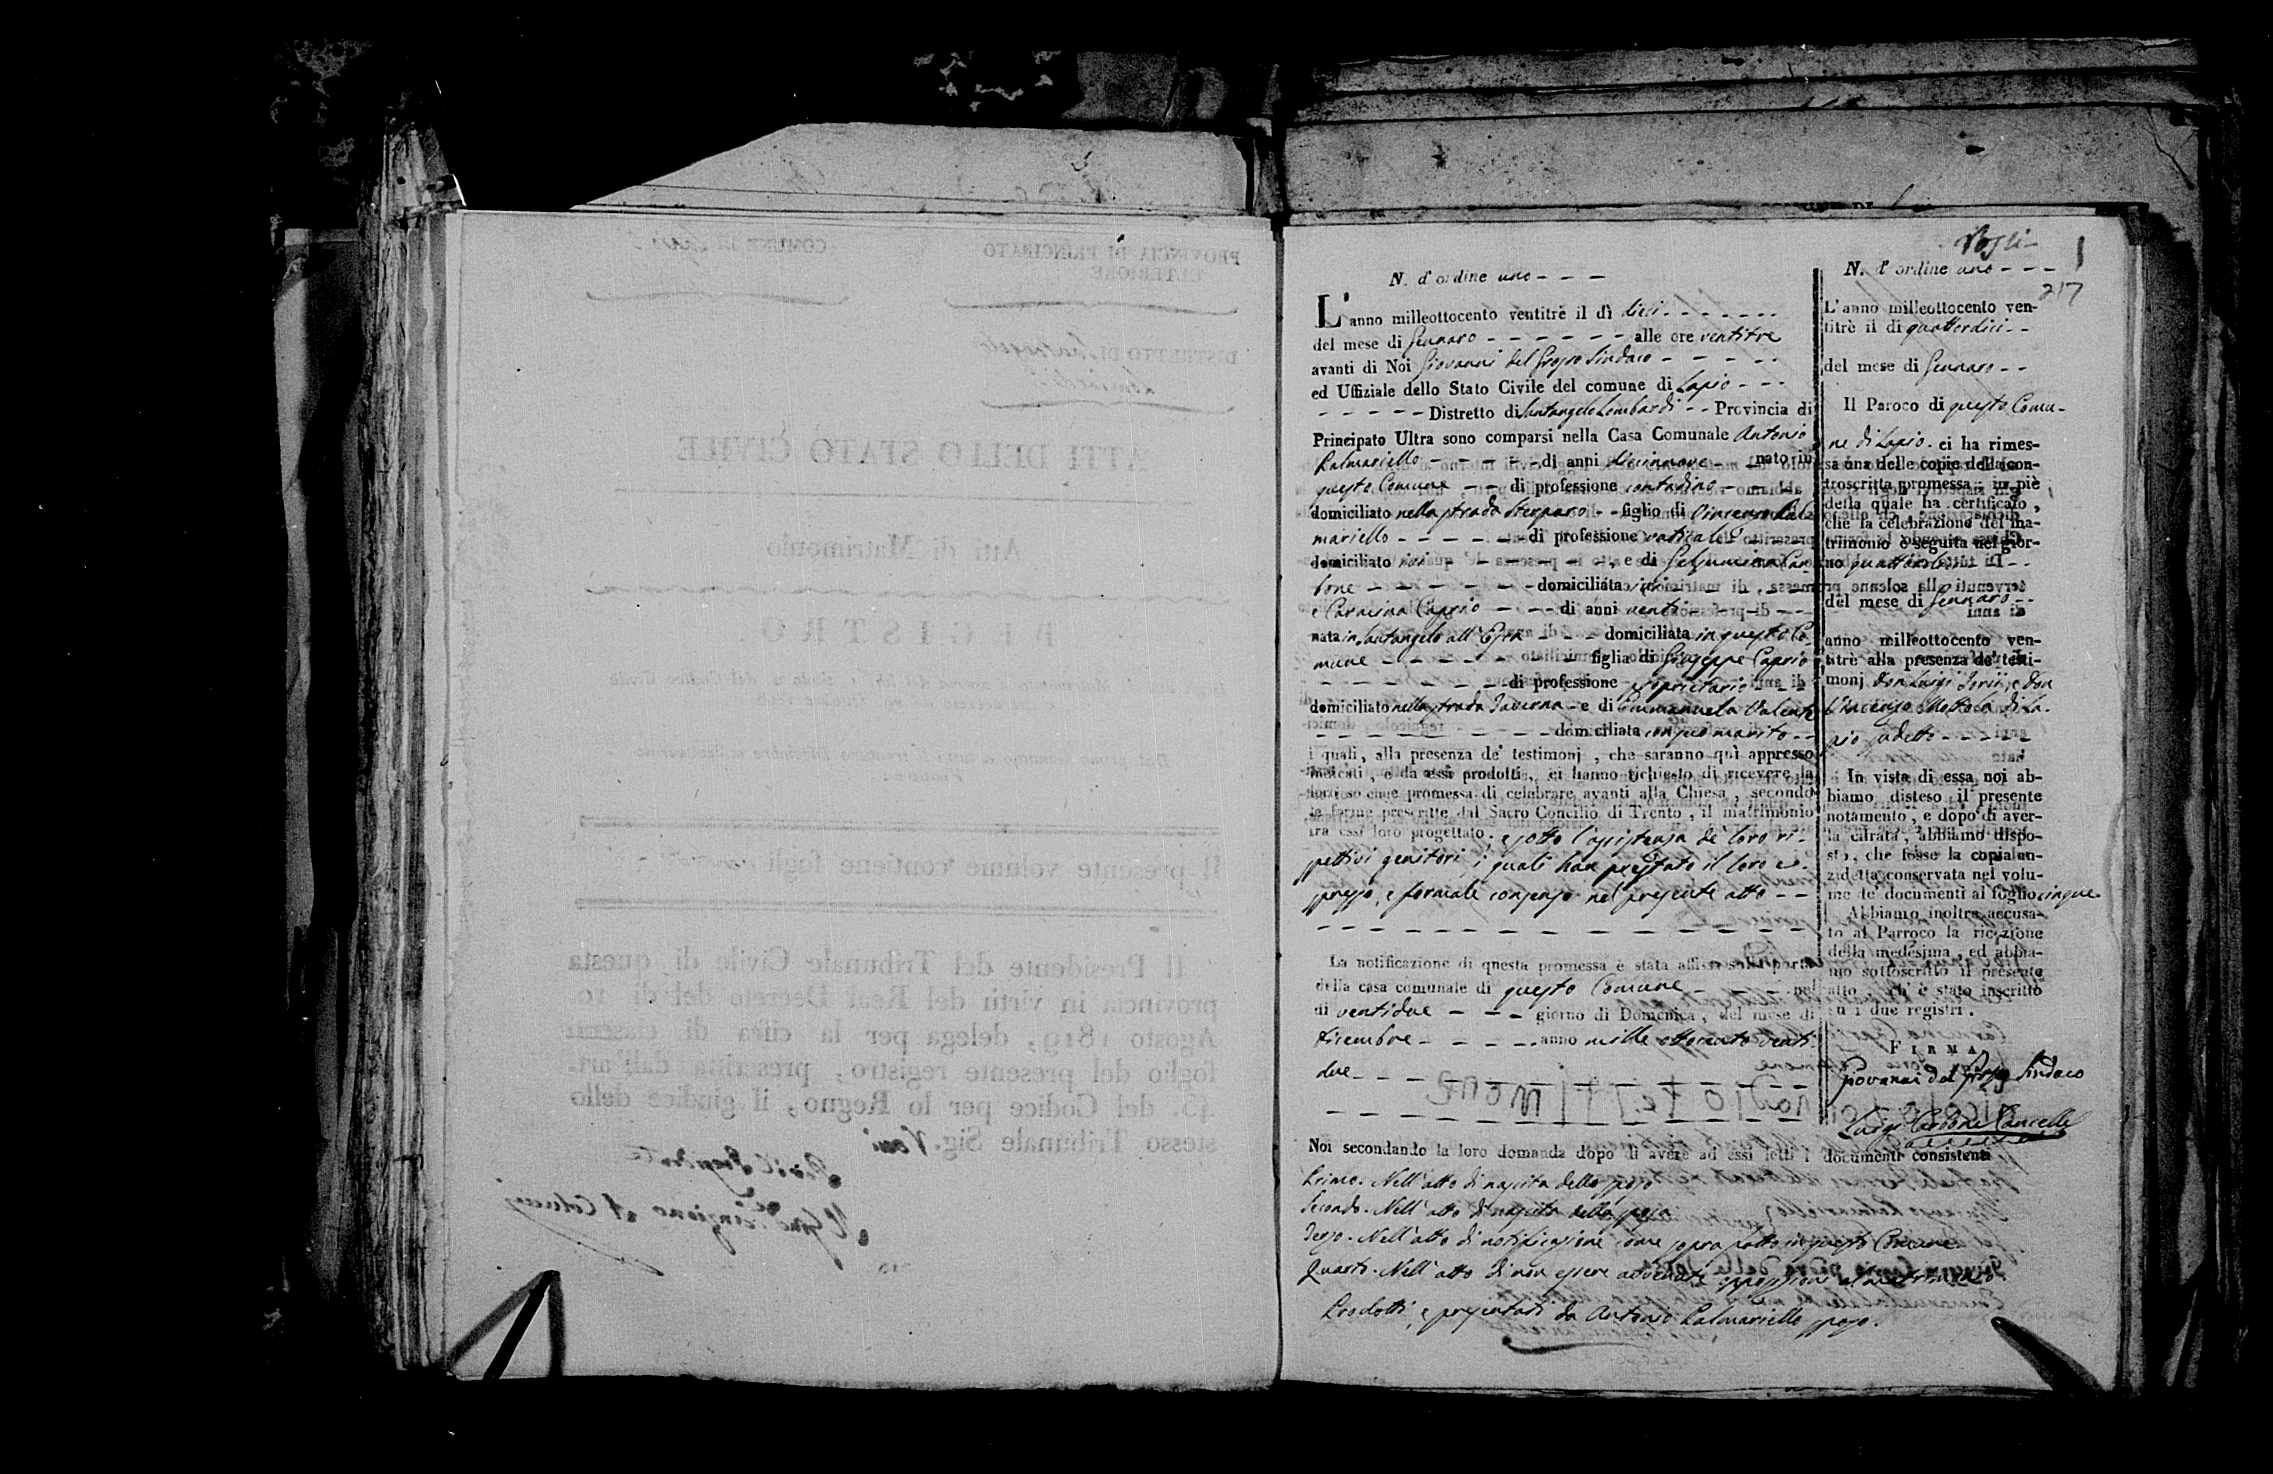 N. d'ordine uno - - -
L'anno milleottocento ventitrè il dì dieci - - - - - - -
del mese di Gennaro - - - - - - alle ore ventitre
avanti di Noi Giovanni del Grosso Sindaco - - - - -
ed Uffiziale dello Stato Civile del comune di Lapio - - -
- - - - - Distretto di Santangelo Lombardi - - Provincia di
Principato Ultra sono comparsi nella Casa Comunale Antonio
Palmariello - - - - - di anni diciannove - - nato in
questo Comune - - di professione contadino - - - -
domiciliato nella strada Sterparo - - figlio di Vincenzo Pal-
mariello - - - - - - di professione vaticale - - -
domiciliato ivi - - - - - - , e di Gelsumina Car-
bone - - - - - - - domiciliata ivi - - - - -
e Carmina Caprio - - - di anni venti - - - - -
nata in Santangelo all'Esca - - - domiciliata in questo Co-
mune - - - - - - - - figlia di Giuseppe Caprio
- - - - - - - - di professione proprietario - - -
domiciliato nella strada Taverna - e di Emmanuela Valente
- - - - - - - - - domiciliata con suo marito - -
i quali, alla presenza de' testimonj, che saranno quì appresso
indicati, e da essi prodotti, ci hanno richiesto di ricevere la
loro solenne promessa di celebrare avanti alla Chiesa, secondo
le forme prescritte dal Sacro Concilio di Trento, il matrimonio
tra essi loro progettato. e sotto l'assistenza de' loro ri-
spettivi genitori, i quali han prestato il loro e-
spresso, e formale consenso nel presente atto - -
- - - - - - - - - - - - - - - - -
La notificazione di questa promessa è stata affissa sulla porta
della casa comunale di questo Comune - - - - nel
dì ventidue - - - giorno di Domenica, del mese di
dicembre - - - - - anno mille ottocento venti
due - - - - - - - - - - - - - - - -
- - - - - - - - - - - - - - - - -
Noi secondando la loro domanda dopo di avere ad essi letti i documenti consistenti
Primo. Nell'atto di nascita dello sposo
Secondo. Nell'atto di nascita della sposa
Terzo. Nell'atto di notificazione come sopra fatto in questo Comune
Quarto. Nell'atto di non essere avvenute opposizioni al matrimonio.
Prodotti, e presentati da Antonio Palmariello sposo.
1
217
N. d'ordine uno - - -
L'anno milleottocento ven-
titrè il dì quattordici - -
del mese di Gennaro - -
Il Paroco di questo Comu-
ne di Lapio. ci ha rimes-
sa una delle copie della con-
troscritta promessa; in piè
della quale ha certificato,
che la celebrazione del ma-
trimonio è seguita nel gior-
no quattordici - - -
del mese di Gennaro - -
anno milleottocento ven-
titrè alla presenza de' testi-
monj Don Luigi Forii, e Don
Vincenzo Mottola di La-
pio sudetto - - - - -
In vista di essa noi ab-
biamo disteso il presente
notamento, e dopo di aver-
la cifrata, abbiamo dispo-
sto, che fosse la copia an-
zidetta conservata nel volu-
me de' documenti al foglio cinque
Abbiamo inoltre accusa-
to al Parroco la ricezione
della medesima, ed abbia-
mo sottoscritto il presente
atto, ch' è stato inscritto
su i due registri.
FIRMA
Giovanni del Grosso Sindaco
Luigi Carbone Cancell.
PROVINCIA DI PRINCIPATO
ULTERIORE
COMUNE DI Lapio
DISTRETTO DI Santangelo
Lombardi
ATTI DELLO STATO CIVILE
Atti di Matrimonio
REGISTRO
Il presente volume contiene fogli
Il Presidente del Tribunale Civile di questa
provincia in virtù del Real Decreto del dì 10.
Agosto 1819, delega per la cifra di ciascun
foglio del presente registro, prescritta dall'art.
45. del Codice per lo Regno, il giudice dello
stesso Tribunale Sig.